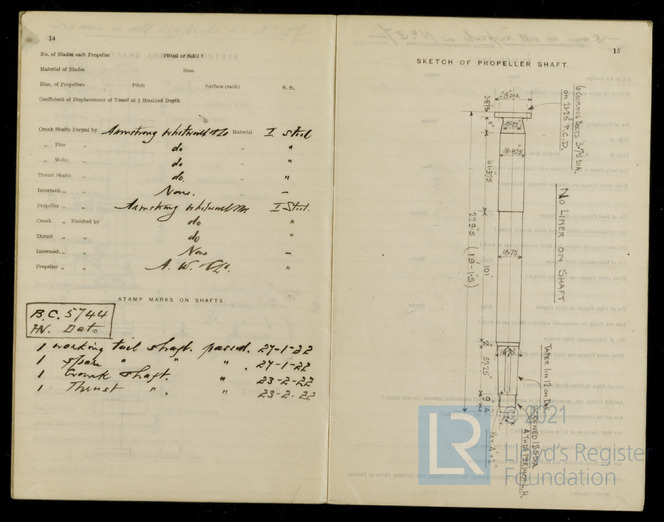 14
No. of Blades each Propeller Fitted or Solid ?
Material of Blades Boss
Diar. of Propellers Pitch Surface (each) S. H.
Coefficient of Displacement of Vessel at ¾ Moulded Depth
Crank Shafts Forged by Armstrong Whitworth & Co Material I. Steel
„ Pins „ do „ "
„ Webs „ do „ "
Thrust Shafts „ do. „ "
Intermed. „ „ None. „ –
Propeller „ „ Armstrong Whitworth I. Steel.
Crank „ Finished by do "
Thrust „ „ do "
Intermed. „ „ None –
Propeller „ „ A. W. & Co. "
STAMP MARKS ON SHAFTS
B.C. 5744
HV. Dato
1 working tail shaft. passed. 27-1-22
1 spare " " " . 27-1-22
1 Crank shaft. " 23-2-22
1 Thrust " . " 23-2-22
15
SKETCH OF PROPELLER SHAFT.
6 COUPLING BOLTS 3.75" DIA.
ON 21.25" P.C.D.
NO LINER ON SHAFT
18.75"
101"
229.5
(19-1.5)
57.25"
TAPER 1 IN 12 ON DIA.
4 THDS PER INCH L.H.
© 2021
LR
Lloyd's Register
Foundation